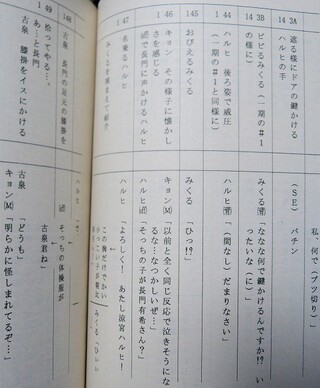 私、何で(ブツ切り)」
14 3A 遮る様にドアの鍵かける
ハルヒの手
(SE) バチン
14 3B ビビるみくる(一期の#1
の様に)
みくる(背)「ななな何で鍵かけるんですか!? い
ったいな(に)」
144 ハルヒ 後ろ姿で威圧
(一期の#1と同様に)
ハルヒ(背)(間なし)「だまりなさい」
145 おびえるみくる
みくる「ひっ!?」
146 キョン、その様子に懐かし
さを感じる
キョン(M)「以前と全く同じ反応で泣きそうにな
るな…なつかしいぜ…」
offで長門に声かけるハルヒ
ハルヒoff「そっちの子が長門有希さん?」
147 名乗るハルヒ
ハルヒ「よろしく! あたし涼宮ハルヒ!
みくるを捕まえて紹介
この胸だけでかい
小っこい子が朝比
みくる「ひぃぃ
148 古泉 長門の足元の膝掛を
off そっちの体操服が
古泉君ね」
149 拾ってやる…。
あ…と長門
古泉 膝掛をイスにかける
古泉「どうも」
キョン(M)「明らかに怪しまれてるぞ…」